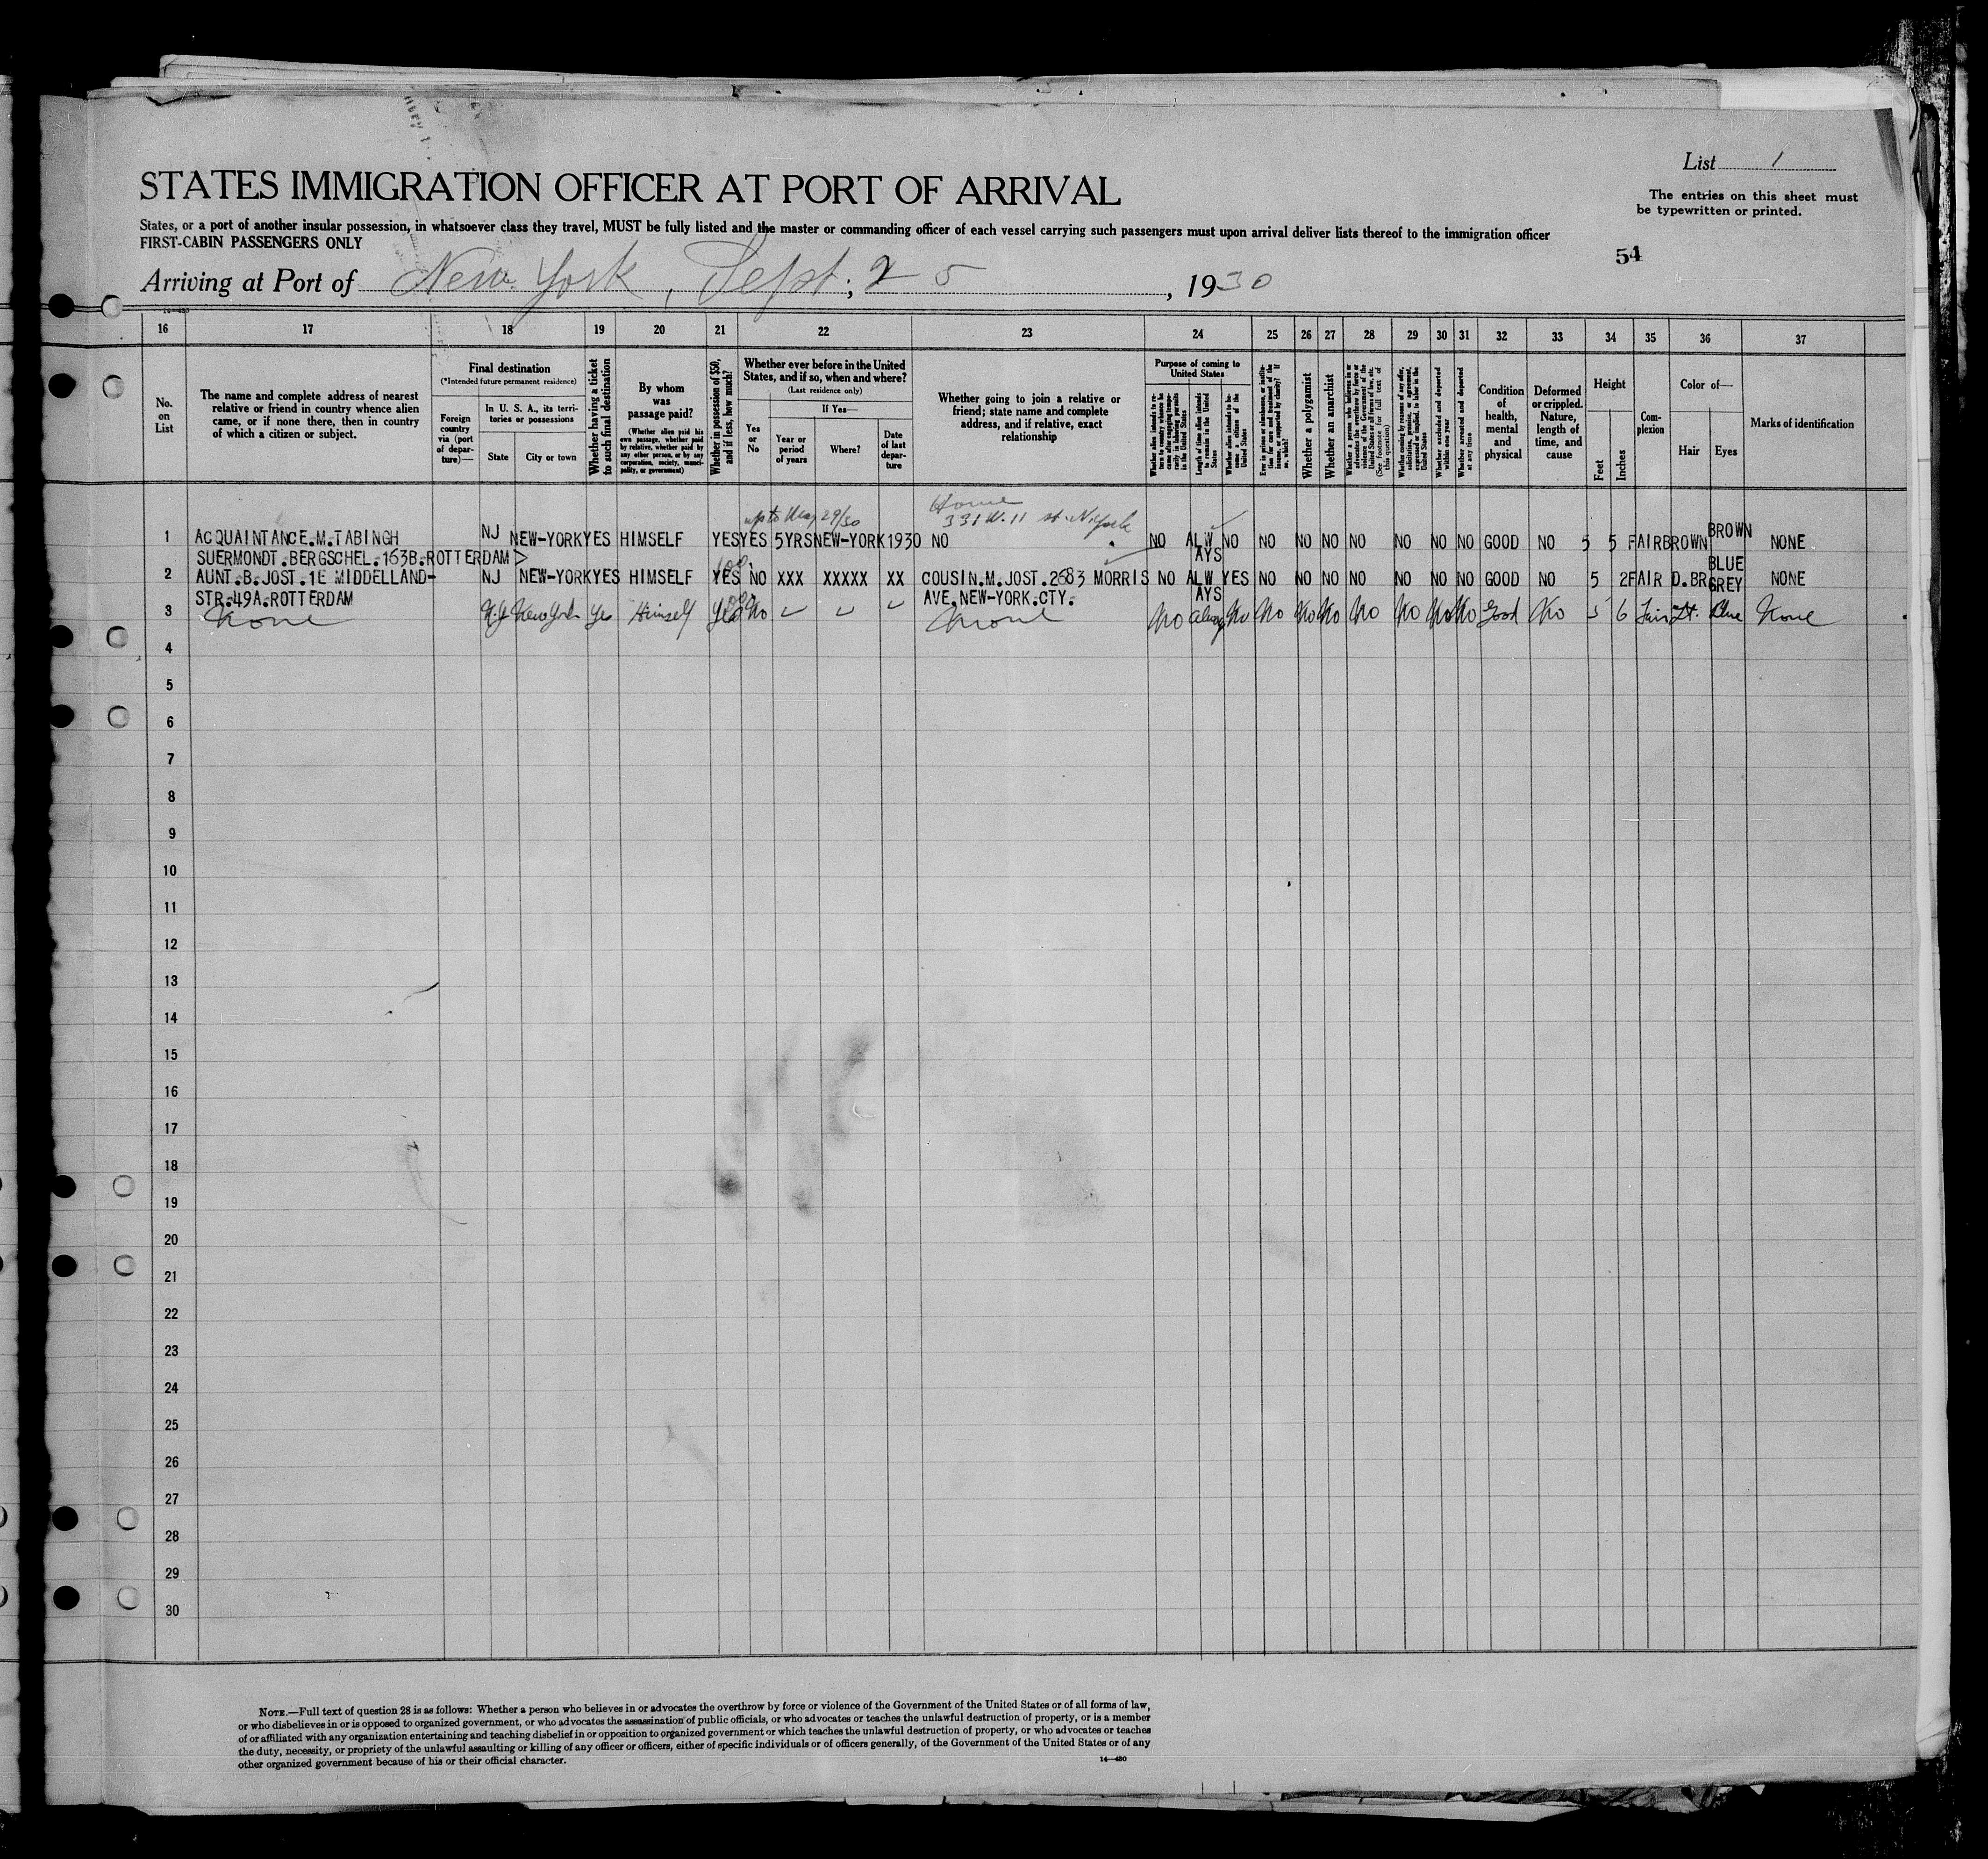 List 1
STATES IMMIGRATION OFFICER AT PORT OF ARRIVAL
The entries on this sheet must
be typewritten or printed.
States, or a port of another insular possession, in whatsoever class they travel, MUST be fully listed and the master or commanding officer of each vessel carrying such passengers must upon arrival deliver lists thereof to the immigration officer
FIRST-CABIN PASSENGERS ONLY
54
Arriving at Port of New York, Sept; 25, 1930
16 17 18 19 20 21 22 23 24 25 26 27 28 29 30 31 32 33 34 35 36 37
No.
on
List
The name and complete address of nearest
relative or friend in country whence alien
came, or if none there, then in country
of which a citizen or subject.
Final destination
(*Intended future permanent residence)
Foreign
country
via (port
of depar-
ture)—
In U. S. A., its terri-
tories or possessions
State
City or town
Whether having a ticket
to such final destination
By whom
was
passage paid?
(Whether alien paid his
own passage, whether paid
by relative, whether paid by
any other person, or by any
corporation, society, munici-
pality, or government)
Whether in possession of $50,
and if less, how much?
Whether ever before in the United
States, and if so, when and where?
(Last residence only)
Yes
or
No
If Yes—
Year or
period
of years
Where?
Date
of last
depar-
ture
Whether going to join a relative or
friend; state name and complete
address, and if relative, exact
relationship
Purpose of coming to
United States
Whether alien intends to re-
turn to country whence he
came after engaging tempo-
rarily in laboring pursuits
in the United States
Length of time alien intends
to remain in the United
States
Whether alien intends to be-
come a citizen of the
United States
Ever in prison or almshouse, or institu-
tion for care and treatment of the
insane, or supported by charity? If
so, which?
Whether a polygamist
Whether an anarchist
Whether a person who believes in or
advocates the overthrow by force or
violence of the Government of the
United States or all forms of law, etc.
(See footnote for full text of
this question)
Whether coming by reason of any offer,
solicitation, promise, or agreement,
expressed or implied, to labor in the
United States
Whether excluded and deported
within one year
Whether arrested and deported
at any time
Condition
of
health,
mental
and
physical
Deformed
or crippled.
Nature,
length of
time, and
cause
Height
Feet
Inches
Com-
plexion
Color of—
Hair
Eyes
Marks of identification
Home
up to May 29/30 331 W. 11 st. N. York
1 ACQUAINTANCE.M.TABINGH NJ NEW-YORK YES HIMSELF YES YES 5YRS NEW-YORK 1930 NO NO ALW NO NO NO NO NO NO NO NO GOOD NO 5 5 FAIR BROWN BROWN NONE
SUERMONDT.BERGSCHEL.163B.ROTTERDAM AYS
100 BLUE
2 AUNT.B.JOST.1E MIDDELLAND- NJ NEW-YORK YES HIMSELF YES NO XXX XXXXX XX COUSIN.M.JOST.2683 MORRIS NO ALW YES NO NO NO NO NO NO NO GOOD NO 5 2 FAIR D.BR GREY NONE
STR.49A.ROTTERDAM AVE.NEW-YORK.CTY. AYS
3 None N.J New York Yes Himself Yes No None No Always No No No No No No No No Good No 5 6 Fair Lt. Blue None
4
5
6
7
8
9
10
11
12
13
14
15
16
17
18
19
20
21
22
23
24
25
26
27
28
29
30
NOTE.—Full text of question 28 is as follows: Whether a person who believes in or advocates the overthrow by force or violence of the Government of the United States or of all forms of law,
or who disbelieves in or is opposed to organized government, or who advocates the assassination of public officials, or who advocates or teaches the unlawful destruction of property, or is a member
of or affiliated with any organization entertaining and teaching disbelief in or opposition to organized government or which teaches the unlawful destruction of property, or who advocates or teaches
the duty, necessity, or propriety of the unlawful assaulting or killing of any officer or officers, either of specific individuals or of officers generally, of the Government of the United States or of any
other organized government because of his or their official character.
14—430